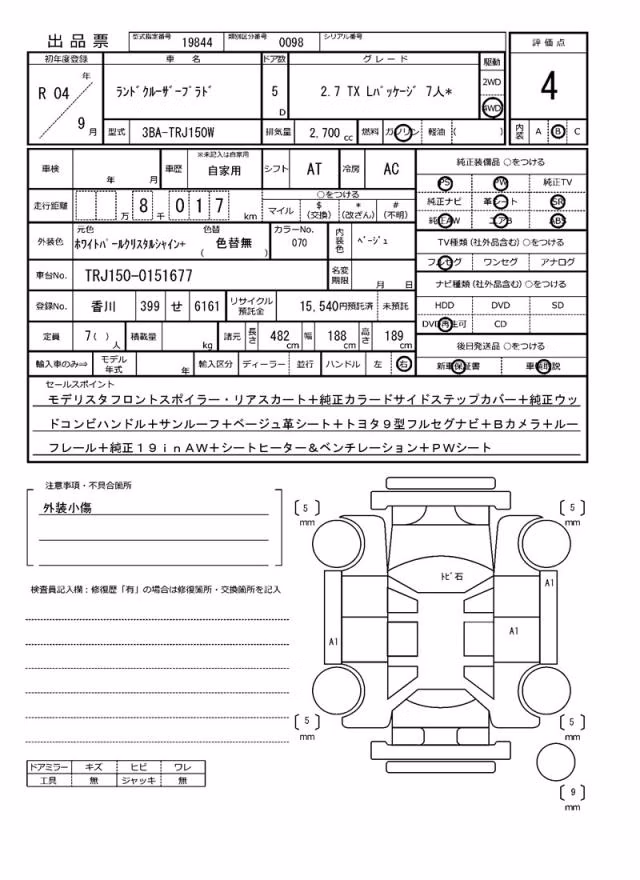 出品票 型式指定番号 19844 類別区分番号 0098 シリアル番号
初年度登録 車 名 ドア数 グレード 駆動 評価点
R 04 年 9 月 ﾗﾝﾄﾞｸﾙｰｻﾞｰﾌﾟﾗﾄﾞ 5 D 2.7 TX Lﾊﾟｯｹｰｼﾞ 7人* 2WD 4WD 4
型式 3BA-TRJ150W 排気量 2,700 cc 燃料 ガソリン 軽油 ( ) 内装 A B C
車検 年 月 車歴 ※未記入は自家用 自家用 シフト AT 冷房 AC
走行距離 万 8 千 0 1 7 km ○をつける マイル $ (交換) * (改ざん) # (不明)
外装色 元色 ﾎﾜｲﾄﾊﾟｰﾙｸﾘｽﾀﾙｼｬｲﾝ+ 色替 ( 色替無 ) カラーNo. 070 内装色 ﾍﾞｰｼﾞｭ
車台No. TRJ150-0151677 名変期限 月 日
登録No. 香川 399 せ 6161 リサイクル預託金 15,540円預託済 未預託
定員 7( ) 人 積載量 kg 諸元 長さ 482 cm 幅 188 cm 高さ 189 cm
輸入車のみ⇨ モデル年式 年 輸入区分 ディーラー 並行 ハンドル 左 右
純正装備品 ○をつける
PS PW 純正TV
純正ナビ 革シート SR
純正AW エアB ABS
TV種類 (社外品含む) ○をつける
フルセグ ワンセグ アナログ
ナビ種類 (社外品含む) ○をつける
HDD DVD SD
DVD再生可 CD
後日発送品 ○をつける
新車保証書 車輌取説
セールスポイント
モデリスタフロントスポイラー・リアスカート+純正カラードサイドステップカバー+純正ウッ
ドコンビハンドル+サンルーフ+ベージュ革シート+トヨタ9型フルセグナビ+Bカメラ+ルー
フレール+純正19inAW+シートヒーター&ベンチレーション+PWシート
注意事項・不具合箇所
外装小傷
検査員記入欄:修復歴「有」の場合は修復箇所・交換箇所を記入
ドアミラー キズ ヒビ ワレ
工具 無 ジャッキ 無
〔 5 〕 mm
〔 5 〕 mm
ﾄﾋﾞ石
A1
A1
A1
〔 5 〕 mm
〔 5 〕 mm
〔 9 〕 mm